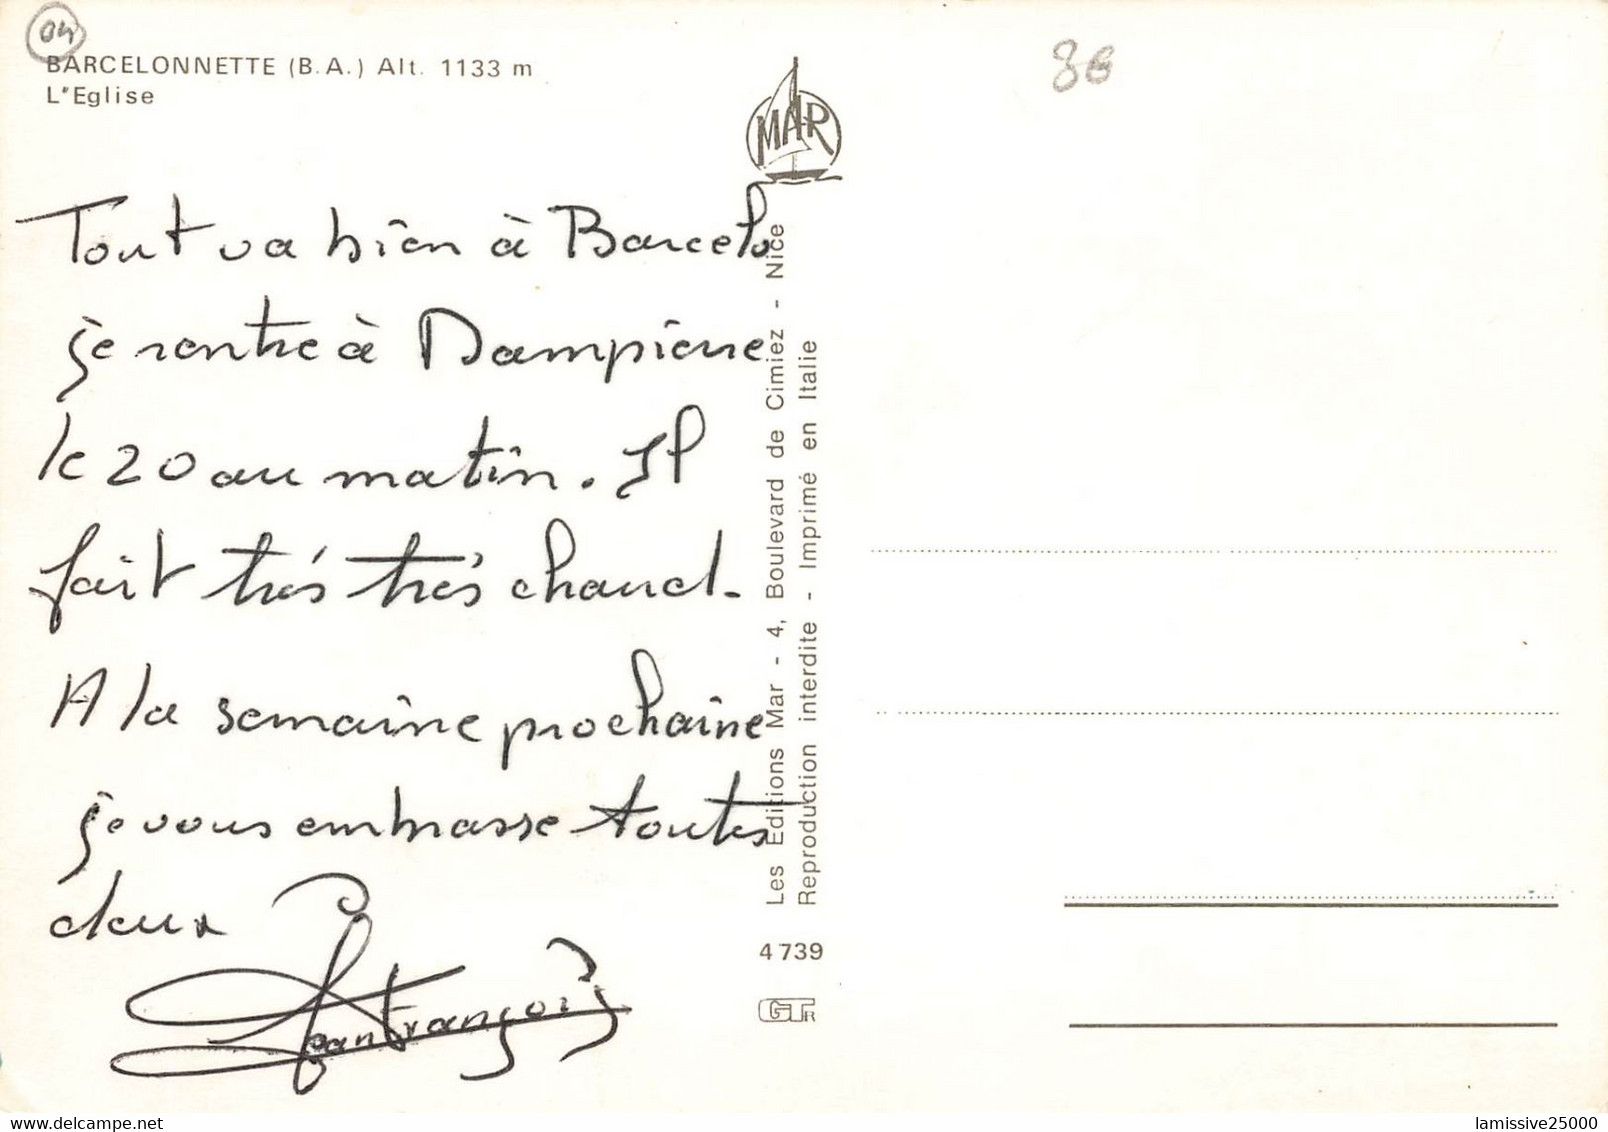 04
BARCELONNETTE (B.A.) Alt. 1133 m
L'Eglise
Tout va bien à Barcelo
je rentre à Dampierre
le 20 au matin. Il
fait très très chaud.
A la semaine prochaine
je vous embrasse toutes
deux
Jean François
MAR
Les Editions Mar - 4, Boulevard de Cimiez - Nice
Reproduction interdite - Imprimé en Italie
4 739
GTR
lamissive25000